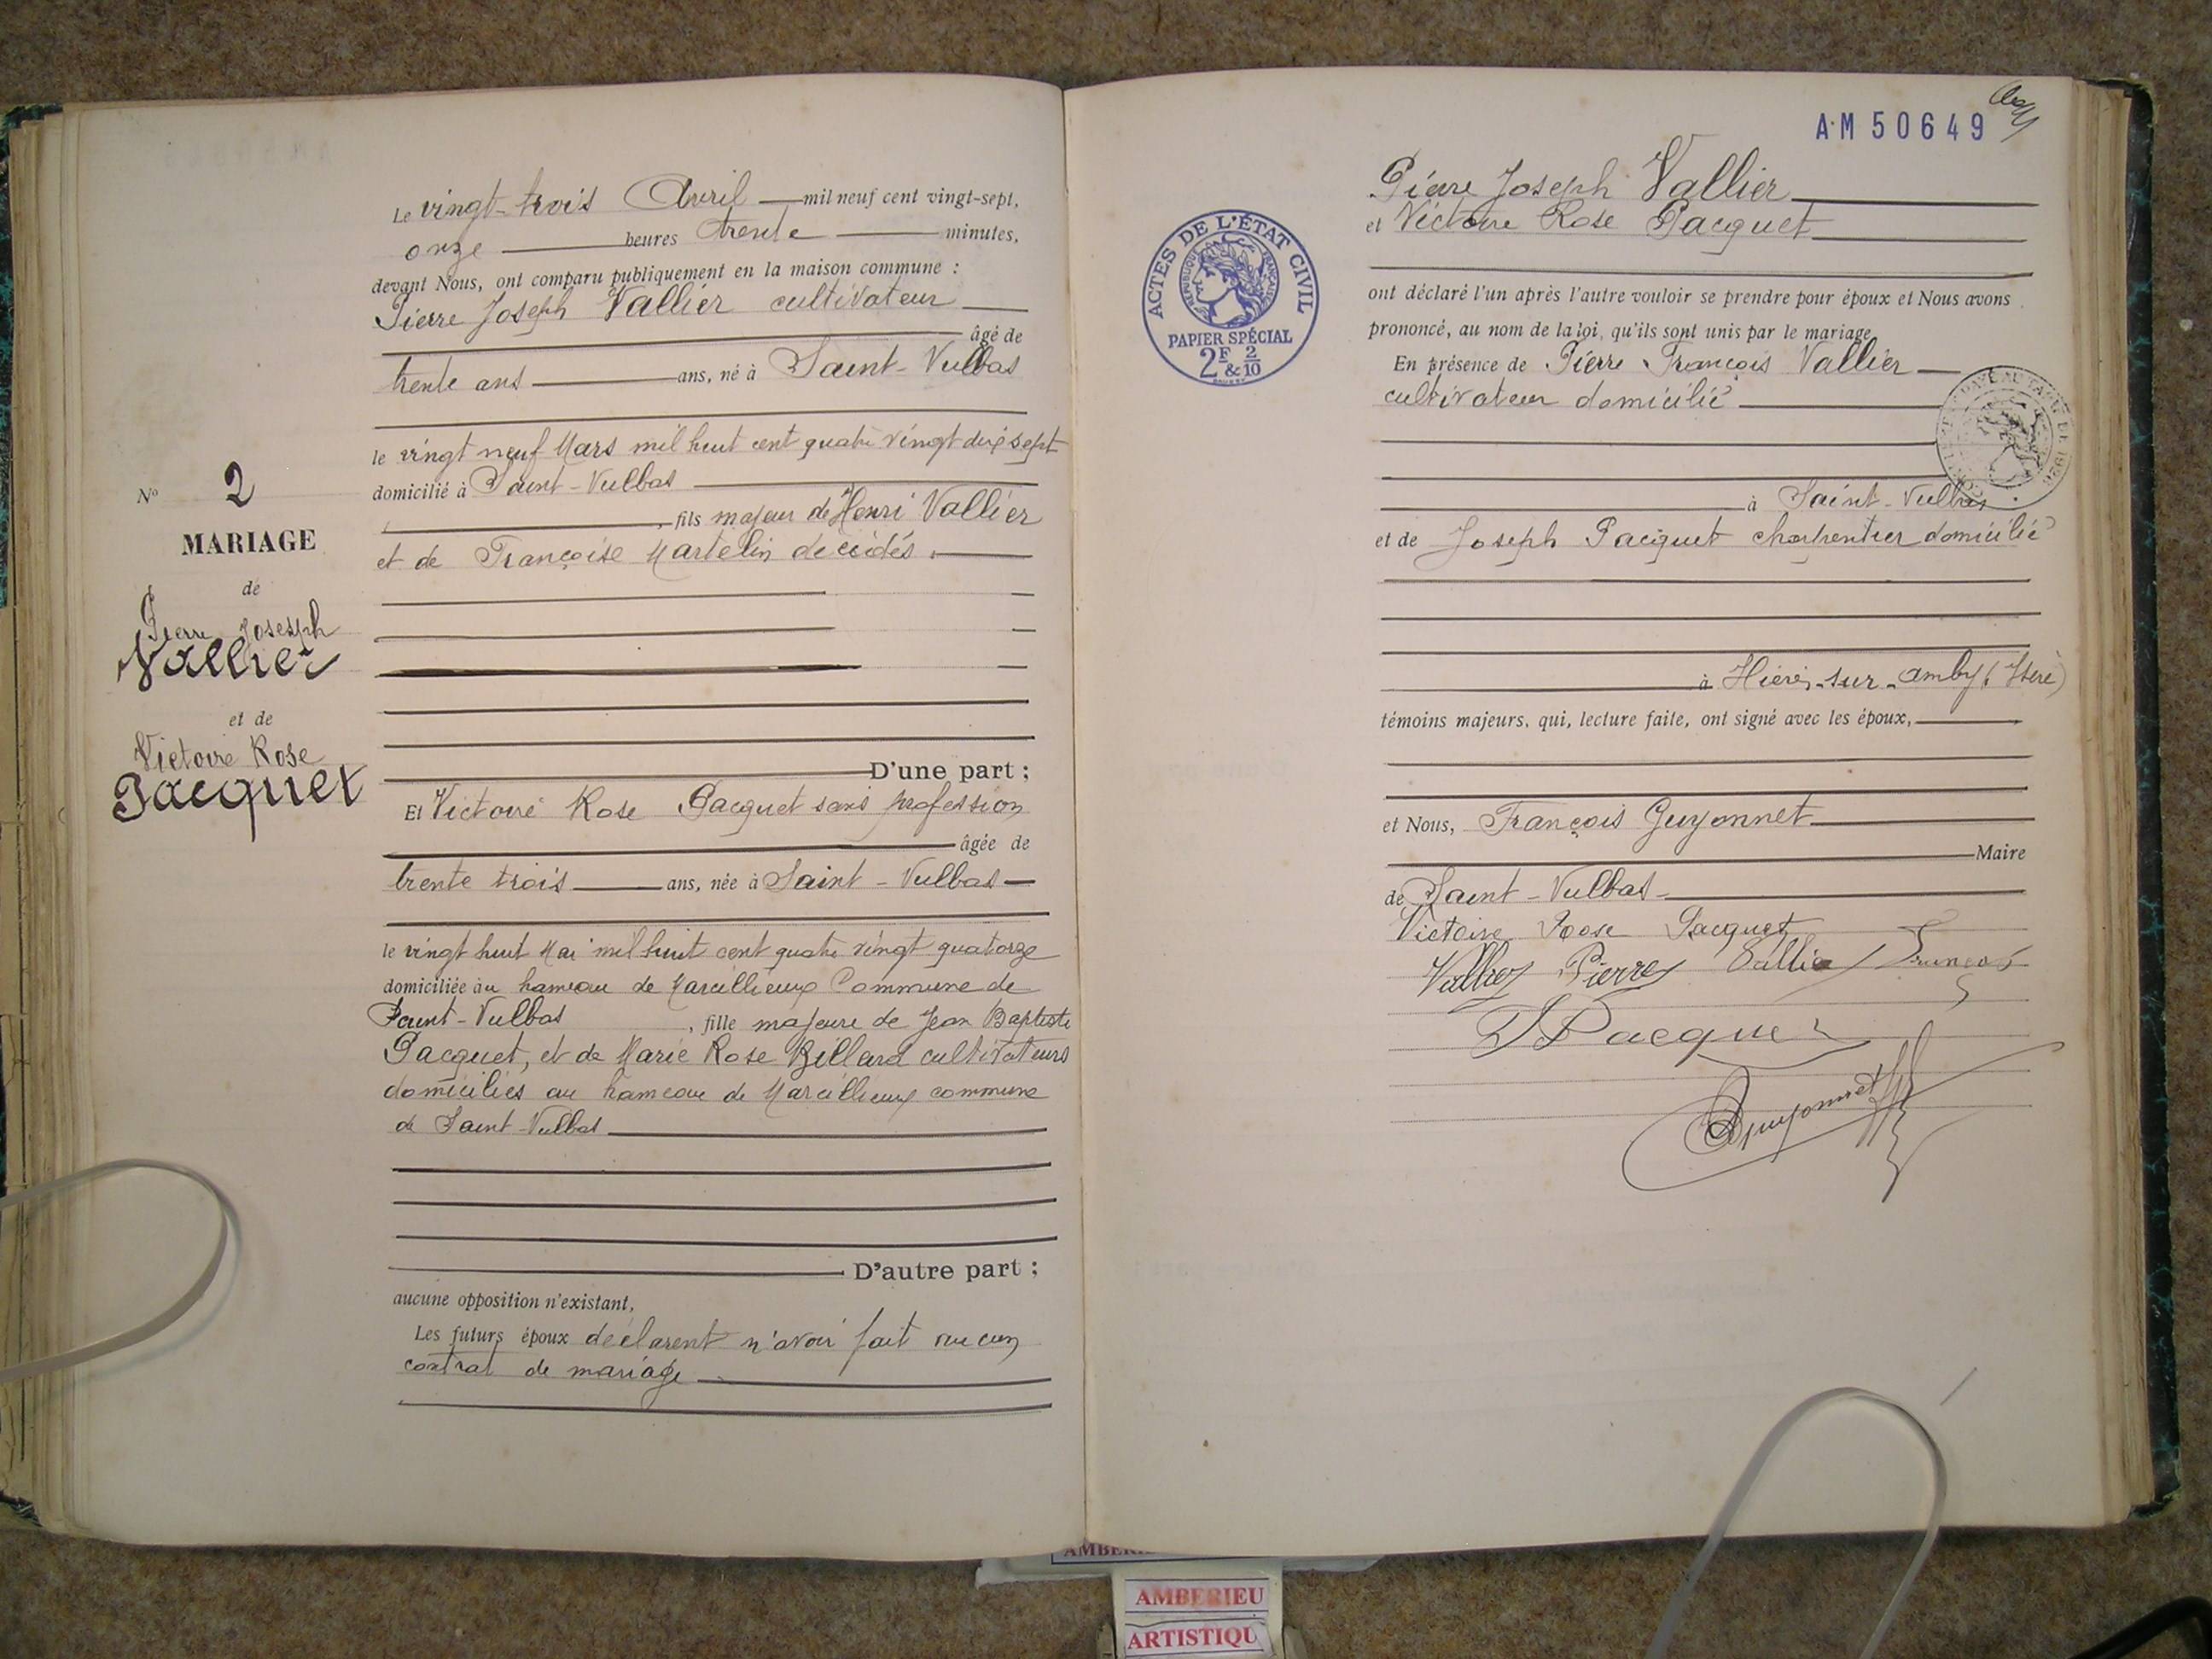 N° 2
MARIAGE
de
Pierre Joseph
Vallier
et de
Victoire Rose
Pacquet
Le vingt-trois Avril mil neuf cent vingt-sept,
onze heures trente minutes,
devant Nous, ont comparu publiquement en la maison commune :
Pierre Joseph Vallier cultivateur
âgé de
trente ans ans, né à Saint-Vulbas
le vingt neuf Mars mil huit cent quatre vingt dix sept
domicilié à Saint-Vulbas
, fils majeur de Henri Vallier
et de Françoise Martelin décédés.
D'une part ;
Et Victoire Rose Pacquet sans profession
âgée de
trente trois ans, née à Saint-Vulbas
le vingt huit Mai mil huit cent quatre vingt quatorze
domiciliée au hameau de Marcillieux Commune de
Saint-Vulbas , fille majeure de Jean Baptiste
Pacquet, et de Marie Rose Billard cultivateurs
domiciliés au hameau de Marcillieux commune
de Saint-Vulbas
D'autre part ;
aucune opposition n'existant,
Les futurs époux déclarent n'avoir fait aucun
contrat de mariage
AM 50649
ACTES DE L'ÉTAT CIVIL
RÉPUBLIQUE FRANÇAISE
PAPIER SPÉCIAL
2F & 2/10
Pierre Joseph Vallier
et Victoire Rose Pacquet
ont déclaré l'un après l'autre vouloir se prendre pour époux et Nous avons
prononcé, au nom de la loi, qu'ils sont unis par le mariage
En présence de Pierre François Vallier
cultivateur domicilié
à Saint-Vulbas
et de Joseph Pacquet charpentier domicilié
à Hières-sur-Amby (Isère)
témoins majeurs, qui, lecture faite, ont signé avec les époux,
et Nous, François Guyonnet
Maire
de Saint-Vulbas
Victoire Rose Pacquet
Vallier Pierre Vallier François
Pacquet
Guyonnet
AMBERIEU
ARTISTIQU